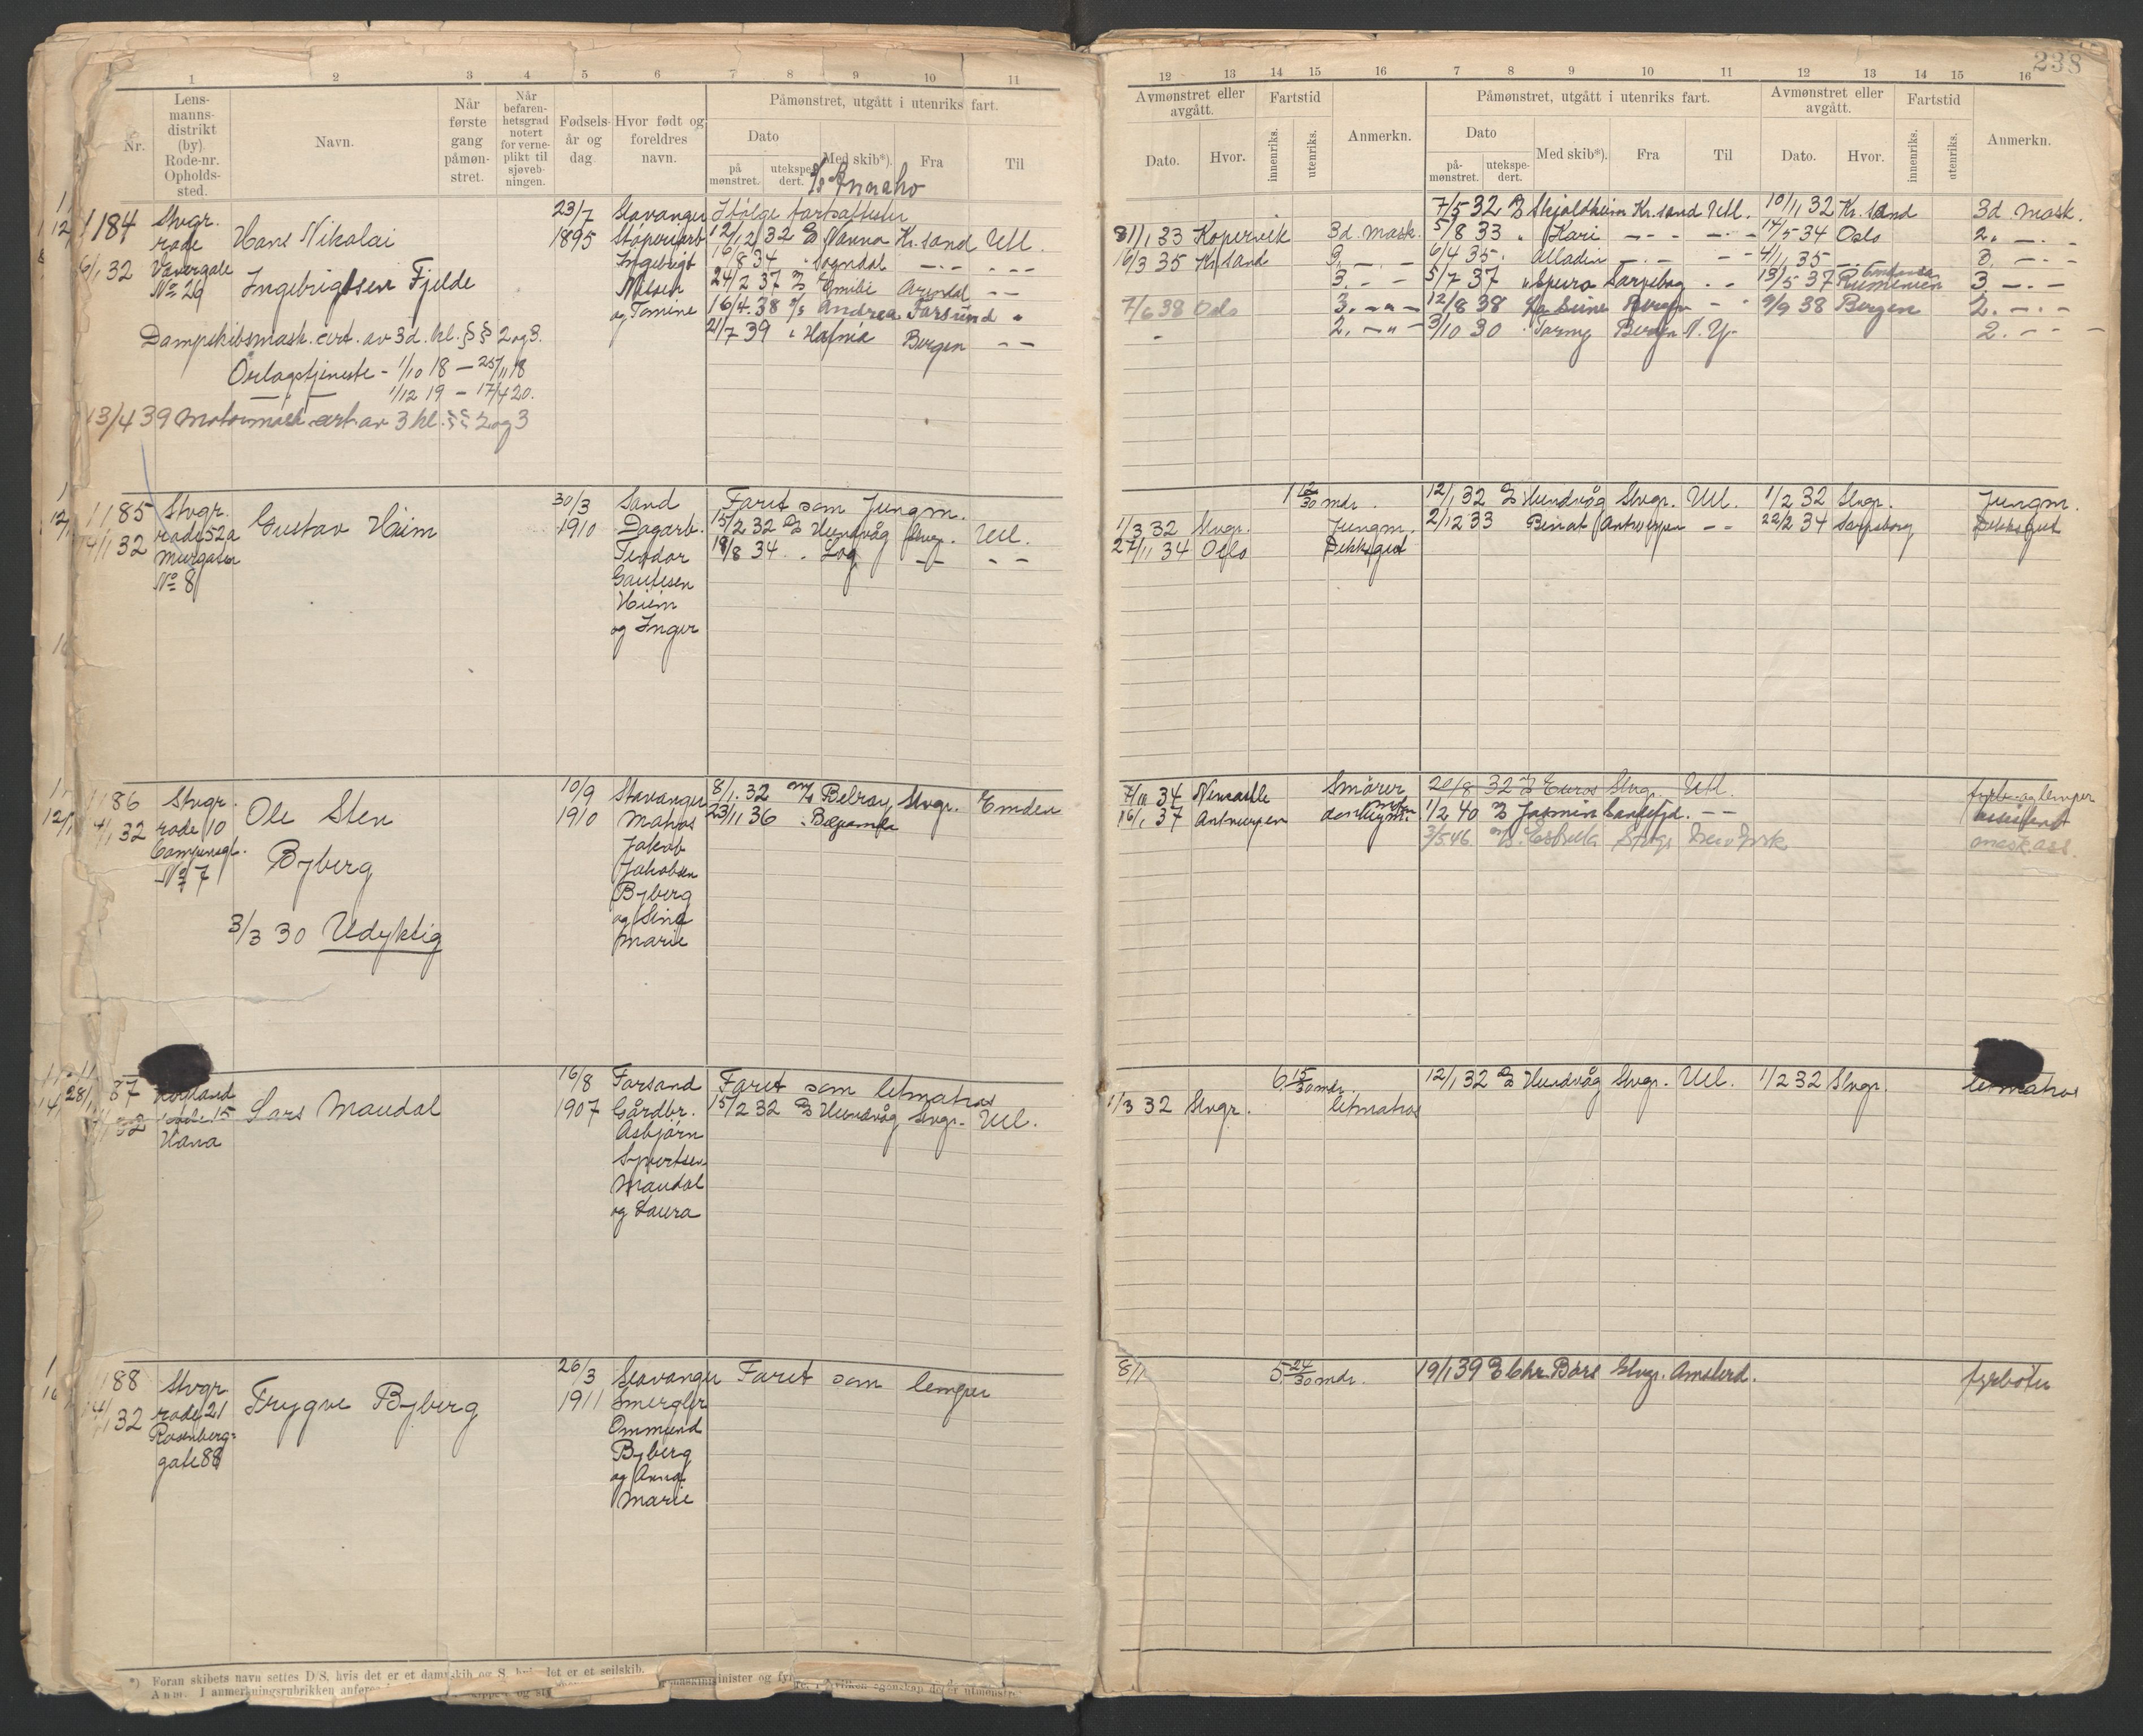 238
1 2 3 4 5 6 7 8 9 10 11
12 13 14 15 16 7 8 9 10 11 12 13 14 15 16
Nr.
Lens-
manns-
distrikt
(by).
Rode-nr.
Opholds-
sted.
Navn.
Når
første
gang
påmøn-
stret.
Når
befaren-
hetsgrad
notert
for verne-
plikt til
sjøveb-
ningen.
Fødsels-
år og
dag.
Hvor født og
foreldres
navn.
Påmønstret, utgått i utenriks fart.
Dato
på
mønstret.
utekspe-
dert.
Med skib*).
Fra
Til
Avmønstret eller
avgått.
Dato.
Hvor.
Fartstid
innenriks.
utenriks.
Anmerkn.
Påmønstret, utgått i utenriks fart.
Dato
på-
mønstret.
utekspe-
dert.
Med skib*).
Fra
Til
Avmønstret eller
avgått.
Dato.
Hvor.
Fartstid
innenriks.
utenriks.
Anmerkn.
1184
6/1 32
Stvgr.
rode
No 26
Hans Nikolai
Ingebrigtsen Fjelde
Dampskibsmask. cert. av 3d. kl. §§ 2 og 3.
Orlogstjeneste - 1/10 18 - 25/11 18
1/12 19 - 17/4 20.
13/4 39 Motormask. cert av 3 kl. §§ 2 og 3
23/7
1895
Stavanger
Støperiarb
Ingebrigt
Nilsen
og Tomine
Ifølge fartsattester
12/12 32 Nanna Kr.sand Utl.
16/8 34 " Sogndal — . —
24/2 37 Emilie Arendal — —
16/4. 38 Andrea Farsund "
21/7 39 " Hafnia Bergen — —
7/5 32 Skjoldheim Kr.sand Utl. 10/11 32 Kr.sand 3d mask.
31/1 33 Kopervik 3d mask. 5/8 33 " Kari — . — 17/5 34 Oslo 2. — . —
16/3 35 Kr.sand 3. — . — 6/4 35 . Alladin — . — 4/11 35 3. — . —
3. — . — 5/7 37 " Spero Sarpsborg . . 13/5 37 3. — . —
7/6 38 Oslo 3. — " — 12/8 38 Bergen 9/9 38 Bergen 2. — . —
2. — " — 3/10 30 . Torny Bergen N.Y. 2. — — —
1185
14/1 32
Stvgr.
rode 52a
Murgaten
No 8
Gustav Heim
30/3
1910
Sand
Dagarb.
Teodor
Gautesen
Heim
og Inger
Faret som Jungm.
15/2 32 Hundvåg Stvgr. Utl.
18/8 34 . Log — — — —
1 12/30 mdr. 12/1 32 Hundvåg Stvgr. Utl. 1/2 32 Stvgr. Jungm.
1/3 32 Stvgr. Jungm. 2/12 33 Antwerpen — — 22/2 34 Sarpsborg Dekksgut
27/11 34 Oslo Dekksgut
1186
4/1 32
Stvgr.
rode 10
No 7
Ole Sten
Byberg
3/3 30 Udyktig
10/9
1910
Stavanger
Matros
Jakob
Jakobsen
Byberg
og Sina
Marie
8/1. 32 m/s Belray Stvgr. Emden
23/11 36 . Belpamela
34 Newcastle Smører 20/8 32 Euros Stvgr. Utl. fyrb. og lemper
16/1 37 Antwerpen 1/2 40 Jasmin Sandefjd. — — assistent
3/5. 46. Stvgr New York mask ass.
87
32
Høyland
rode 15
Hana
Lars Maudal
16/8
1907
Forsand
Gårdbr.
Asbjørn
Syvertsen
Maudal
og Laura
Faret som letmatros
15/2 32 Hundvåg Stvgr. Utl.
6 15/30 mdr. 12/1 32 Hundvåg Stvgr. Utl. 1/2 32 Stvgr. letmatros
1/3 32 Stvgr. letmatros
88
14/1 32
Stvgr.
rode 21
Rosenberg-
gate 88
Trygve Byberg
26/3
1911
Stavanger
Smergler
Ommund
Byberg
og Anna
Marie
Faret som lemper
8/1 5. 24/30 mdr. 19/1 39 Chr. Bors Stvgr. Amsterd. fyrbøter
*) Foran skibets navn settes D/S, hvis det er et dampskib og S, hvis det er et seilskib.
Anm. I anmerkningsrubrikken anføres